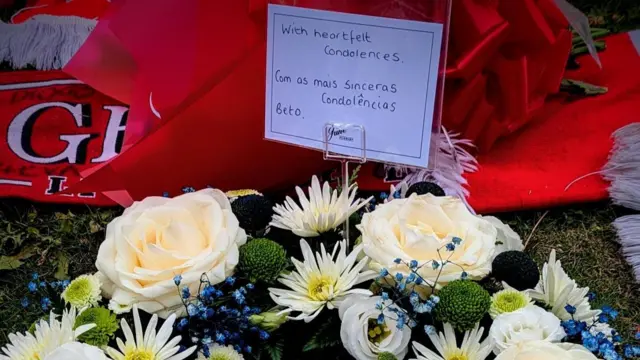 With heartfelt
Condolences.
Com as mais sinceras
Condolências
Beto.